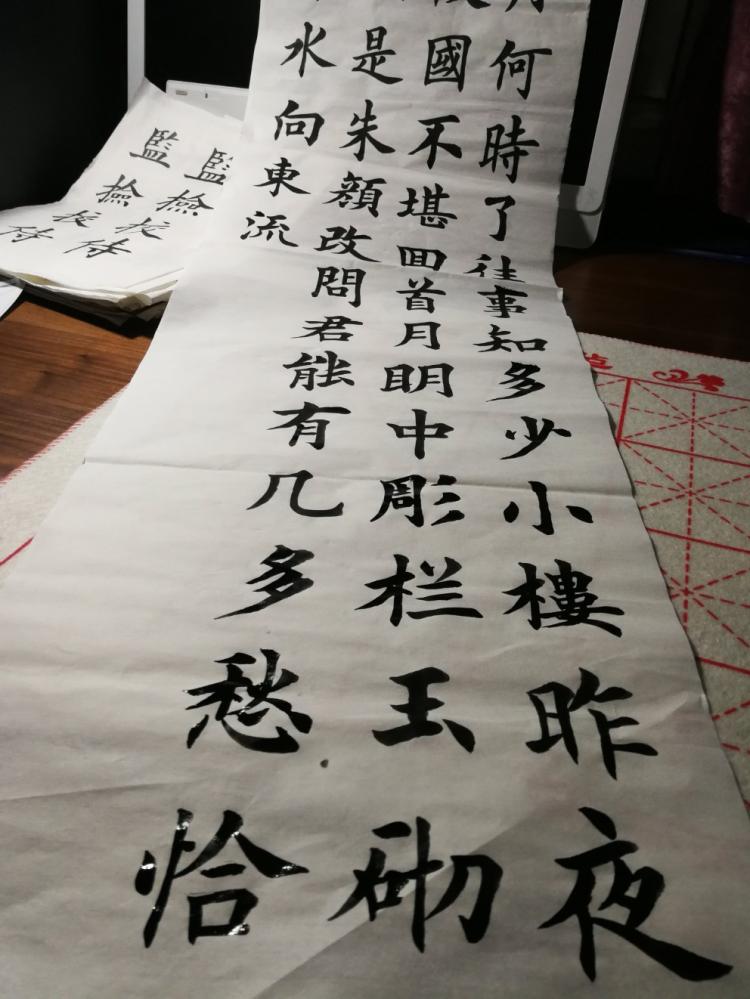 何時了往事知多少小樓昨夜
國不堪回首月明中彫栏玉砌
是朱顔改問君能有几多愁恰
水向東流
監檢校侍
監檢校侍